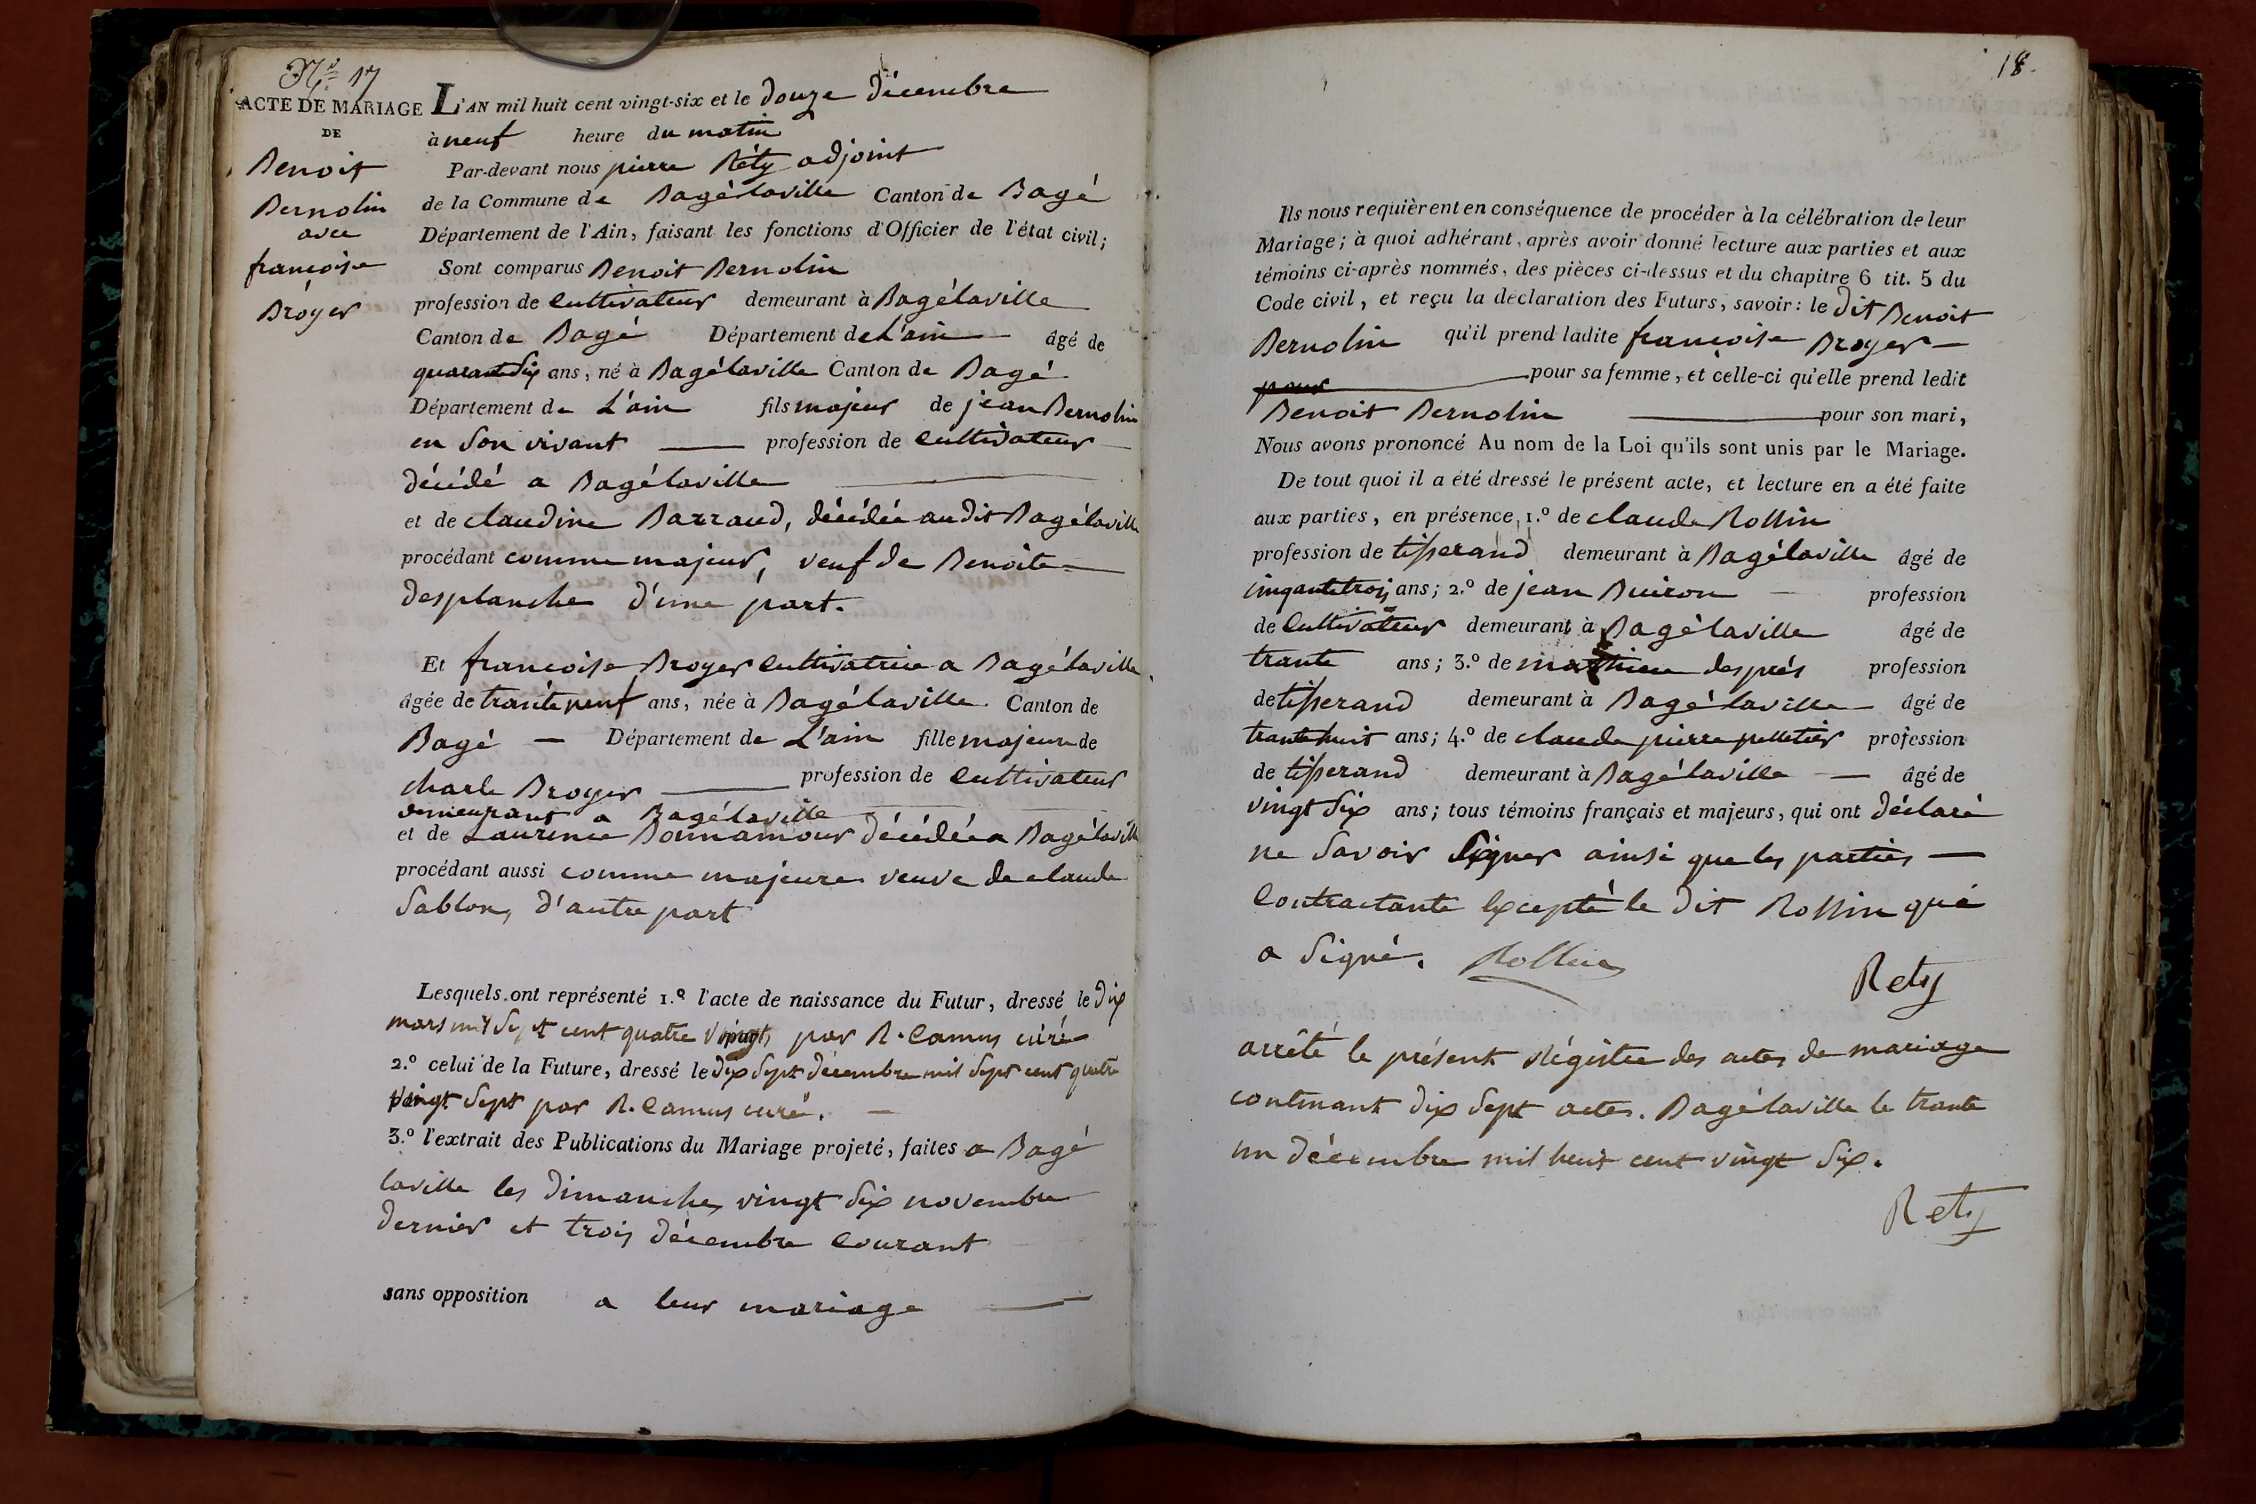 N.º 17
ACTE DE MARIAGE
DE
Benoit
Bernolin
avec
francoise
Broyer
L'AN mil huit cent vingt-six et le douze décembre
à neuf heure du matin
Par-devant nous pierre Réty adjoint
de la Commune de Bagélaville Canton de Bagé
Département de l'Ain, faisant les fonctions d'Officier de l'état civil;
Sont comparus Benoit Bernolin
profession de Cultivateur demeurant à Bagélaville
Canton de Bagé Département de L'ain âgé de
quarante six ans, né à Bagélaville Canton de Bagé
Département de L'ain fils majeur de jean Bernolin
en son vivant profession de Cultivateur
décédé a Bagélaville
et de claudine Barraud, décédée audit Bagélaville
procédant comme majeur, veuf de Benoite
desplanche d'une part.
Et francoise Broyer Cultivatrice a Bagélaville
âgée de trante neuf ans, née à Bagélaville Canton de
Bagé Département de L'ain fille majeure de
charle Broyer profession de Cultivateur
demeurant a Bagélaville
et de Laurence Bonnamour décédée a Bagélaville
procédant aussi comme majeure veuve de claude
Sablon, d'autre part
Lesquels ont représenté 1.º l'acte de naissance du Futur, dressé le dix
mars mil Sept cent quatre vingt, par R. Camus curé
2.º celui de la Future, dressé le dix Sept décembre mil Sept cent quatre
vingt Sept par R. Camus curé.
3.º l'extrait des Publications du Mariage projeté, faites a Bagé
laville les dimanches vingt Six novembre
dernier et trois décembre Courant
sans opposition a leur mariage
18.
Ils nous requièrent en conséquence de procéder à la célébration de leur
Mariage; à quoi adhérant, après avoir donné lecture aux parties et aux
témoins ci-après nommés, des pièces ci-dessus et du chapitre 6 tit. 5 du
Code civil, et reçu la déclaration des Futurs, savoir: le dit Benoit
Bernolin qu'il prend ladite francoise Broyer
pour pour sa femme, et celle-ci qu'elle prend ledit
Benoit Bernolin pour son mari,
Nous avons prononcé Au nom de la Loi qu'ils sont unis par le Mariage.
De tout quoi il a été dressé le présent acte, et lecture en a été faite
aux parties, en présence 1.º de claude Rollin
profession de tisserand demeurant à Bagélaville âgé de
cinqante trois ans; 2.º de jean Buiron profession
de Cultivateur demeurant à Bagélaville âgé de
trante ans; 3.º de mathieu després profession
de tisserand demeurant à Bagélaville âgé de
trante huit ans; 4.º de claude pierre pelletier profession
de tisserand demeurant à Bagélaville âgé de
vingt Six ans; tous témoins français et majeurs, qui ont déclaré
ne Savoir Signer ainsi que les parties
Contractante Excepté le dit Rollin qui
a Signé. Rollin
Rety
arrêté le présent Régistre des actes de mariage
contenant dix Sept actes. Bagélaville le trante
un décembre mil huit cent vingt Six.
Rety